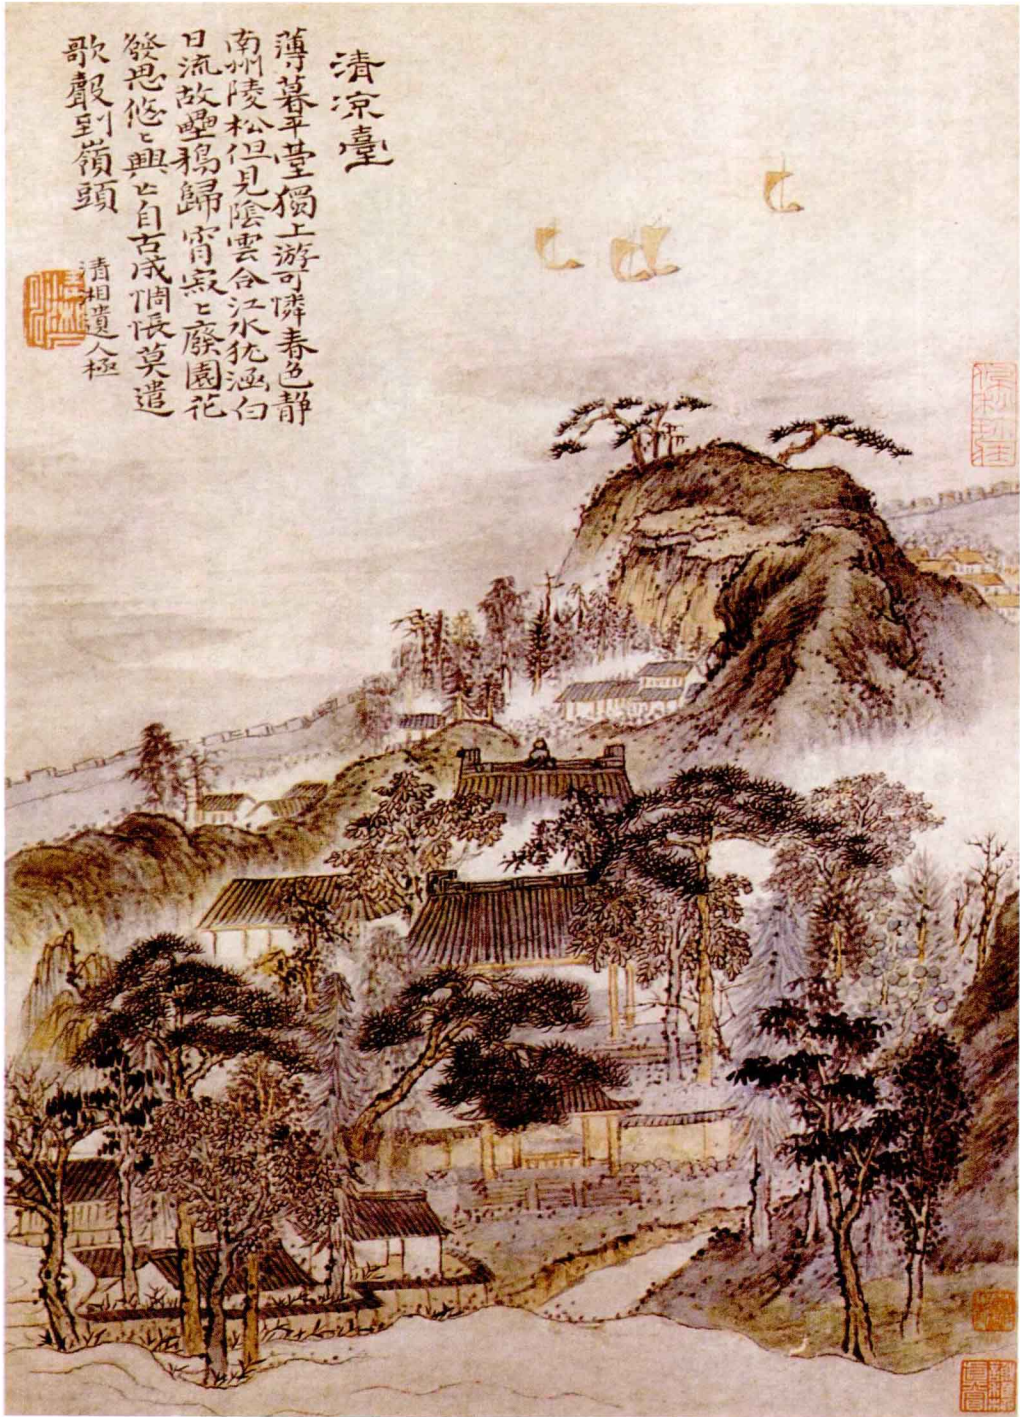 清凉臺
薄暮平臺獨上游可憐春色静
南州陵松但見陰雲合江水犹涵白
日流故壘鴉歸宵寂〻廢園花
發思悠〻興亡自古成惆悵莫遣
歌聲到嶺頭
清湘遺人極